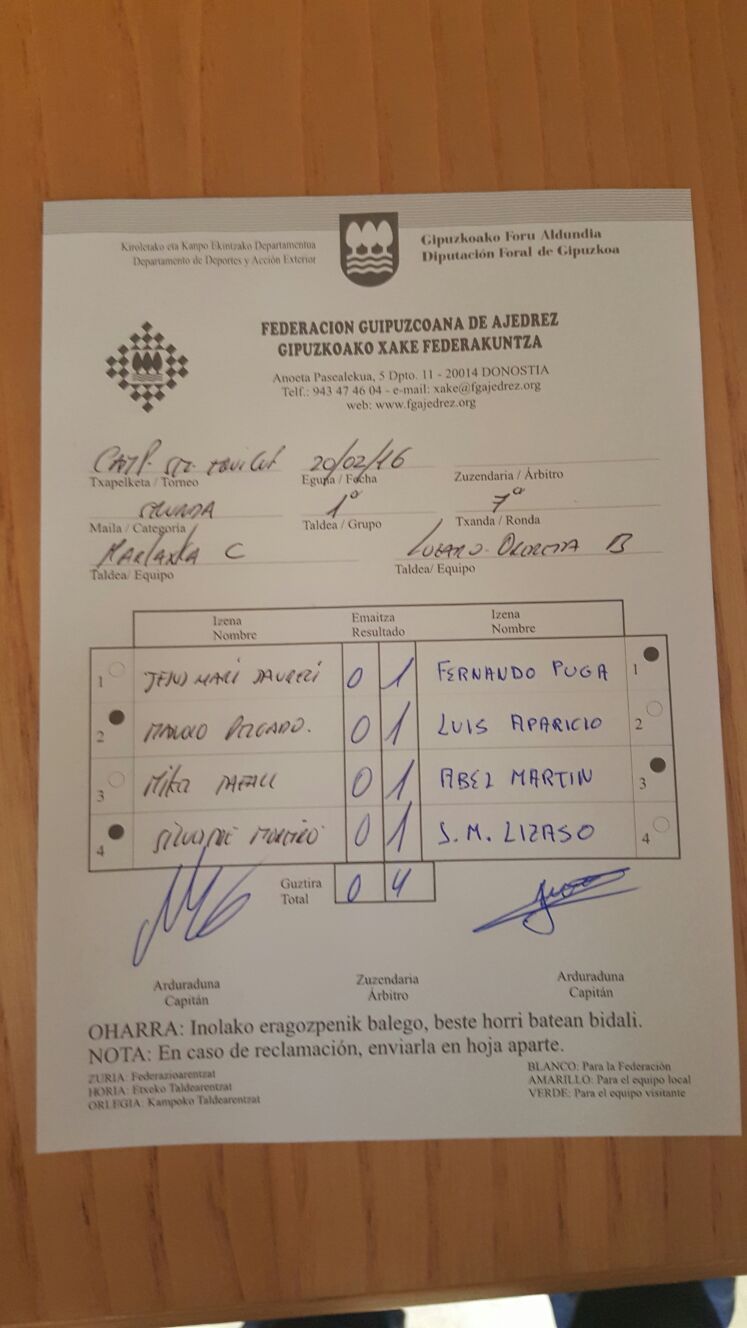 Kiroletako eta Kanpo Ekintzako Departamentua
Departamento de Deportes y Acción Exterior
Gipuzkoako Foru Aldundia
Diputación Foral de Gipuzkoa
FEDERACION GUIPUZCOANA DE AJEDREZ
GIPUZKOAKO XAKE FEDERAKUNTZA
Anoeta Pasealekua, 5 Dpto. 11 - 20014 DONOSTIA
Telf.: 943 47 46 04 - e-mail: xake@fgajedrez.org
web: www.fgajedrez.org
CAMP. 20/02/16
Txapelketa / Torneo Eguna / Fecha Zuzendaria / Árbitro
1º 7ª
Maila / Categoría Taldea / Grupo Txanda / Ronda
C B
Taldea/ Equipo Taldea/ Equipo
Izena Emaitza Izena
Nombre Resultado Nombre
1 0 1 FERNANDO PUGA 1
2 MANOLO DELGADO. 0 1 LUIS APARICIO 2
3 MIKEL 0 1 ABEL MARTIN 3
4 0 1 S.M. LIZASO 4
Guztira
Total 0 4
Arduraduna Zuzendaria Arduraduna
Capitán Árbitro Capitán
OHARRA: Inolako eragozpenik balego, beste horri batean bidali.
NOTA: En caso de reclamación, enviarla en hoja aparte.
ZURIA: Federazioarentzat
HORIA: Etxeko Taldearentzat
ORLEGIA: Kampoko Taldearentzat
BLANCO: Para la Federación
AMARILLO: Para el equipo local
VERDE: Para el equipo visitante